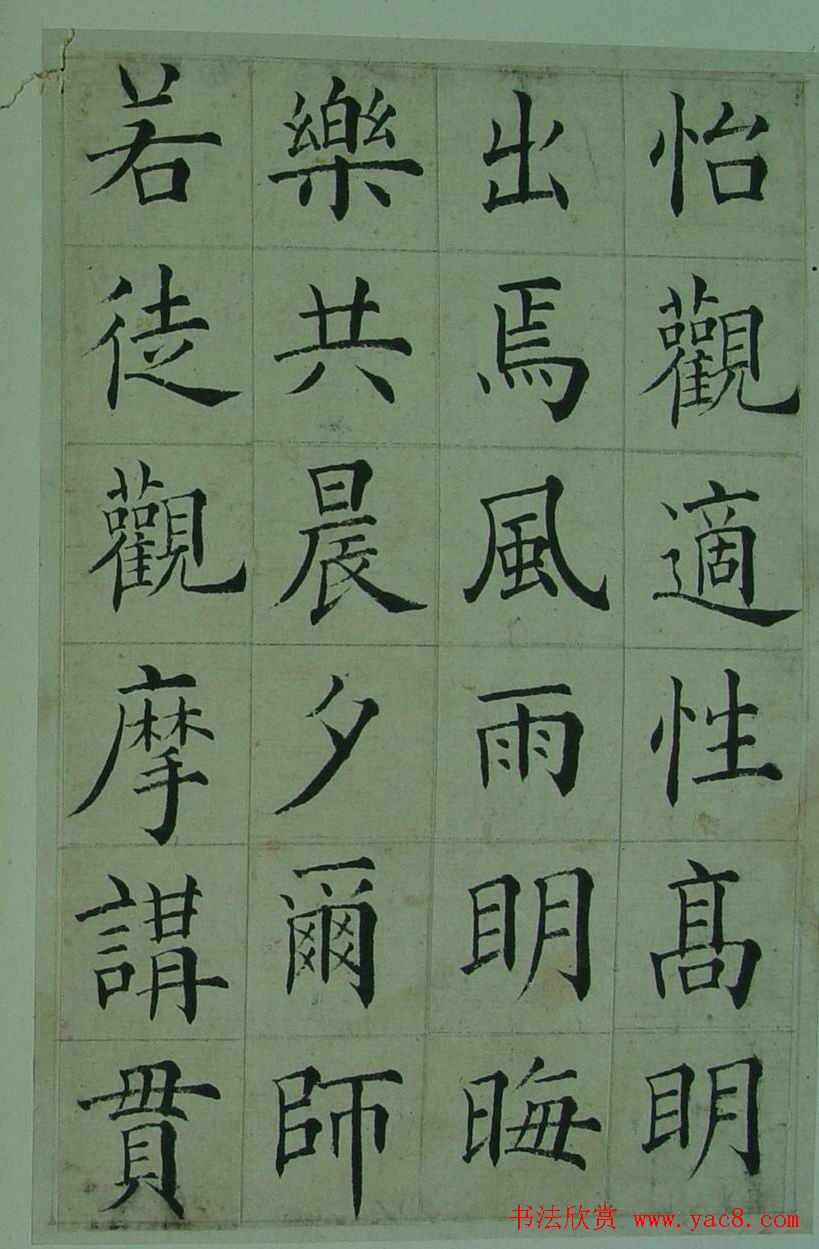 怡觀適性髙明
出焉風雨明晦
樂共晨夕爾師
若徒觀摩講貫
书法欣赏 www.yac8.com